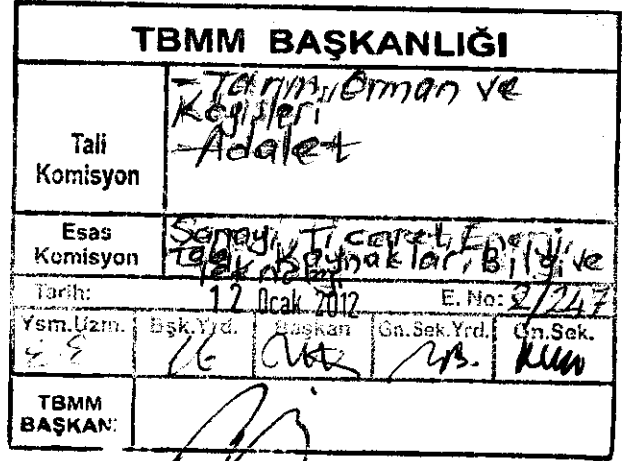 TBMM BAŞKANLIĞI
Tali Komisyon
- Tarım, Orman ve
Köyişleri
- Adalet
Esas Komisyon
Sanayi, Ticaret, Enerji,
Tabii Kaynaklar, Bilgi ve
Teknoloji
Tarih: 12 Ocak 2012 E. No: 2/247
Ysm.Uzm. Bşk.Yrd. Başkan Gn.Sek.Yrd. Gn.Sek.
TBMM
BAŞKANI: